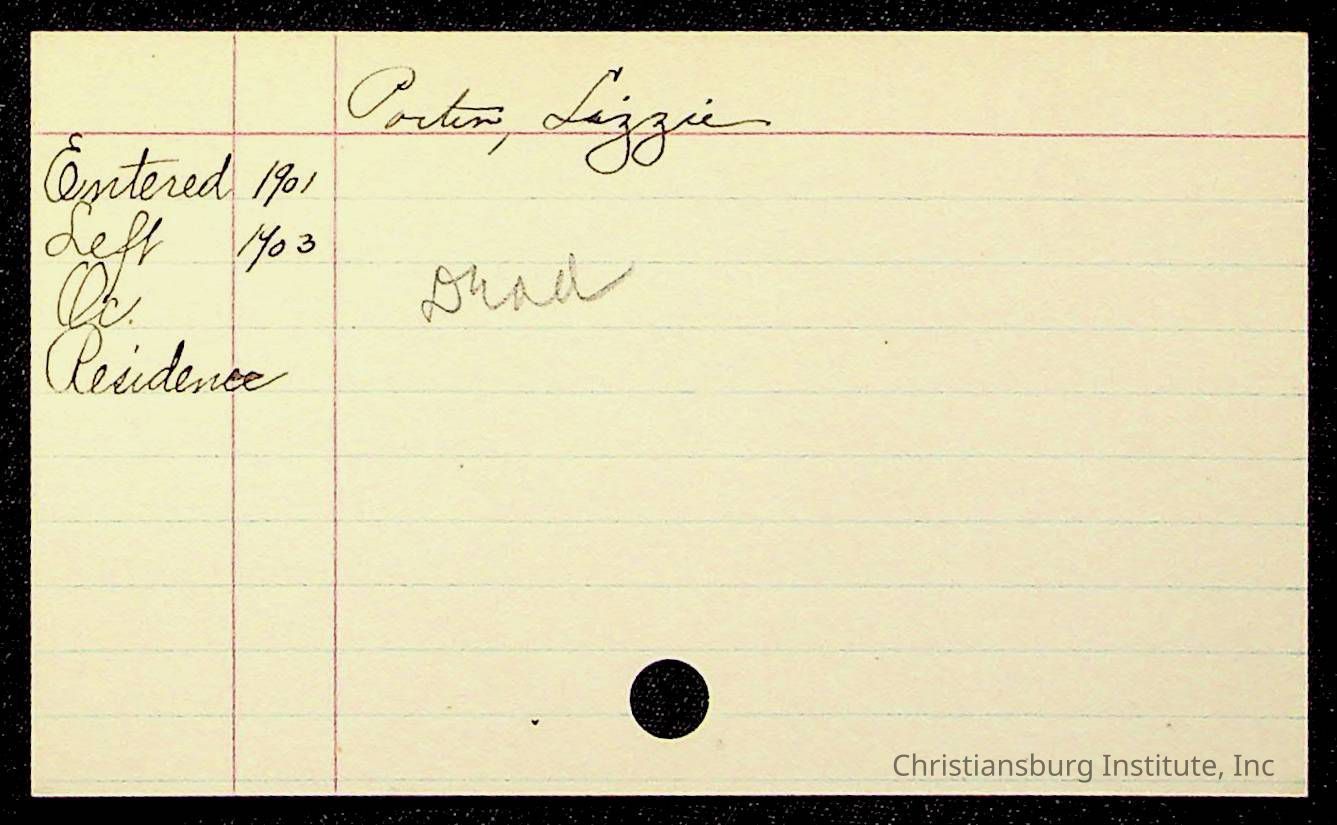 Porter, Lizzie
Entered 1901
Left 1903
Oc.
Dead
Residence
Christiansburg Institute, Inc